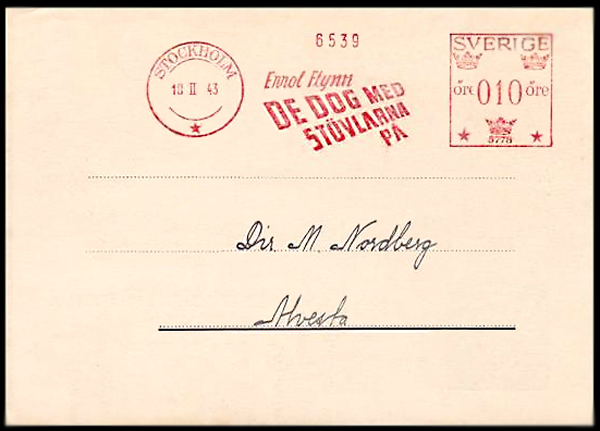 6539
STOCKHOLM
18 II 43
Errol Flynn
DE DOG MED
STÖVLARNA
PÅ
SVERIGE
öre 010 öre
5778
Dir M. Nordberg
Alvesta